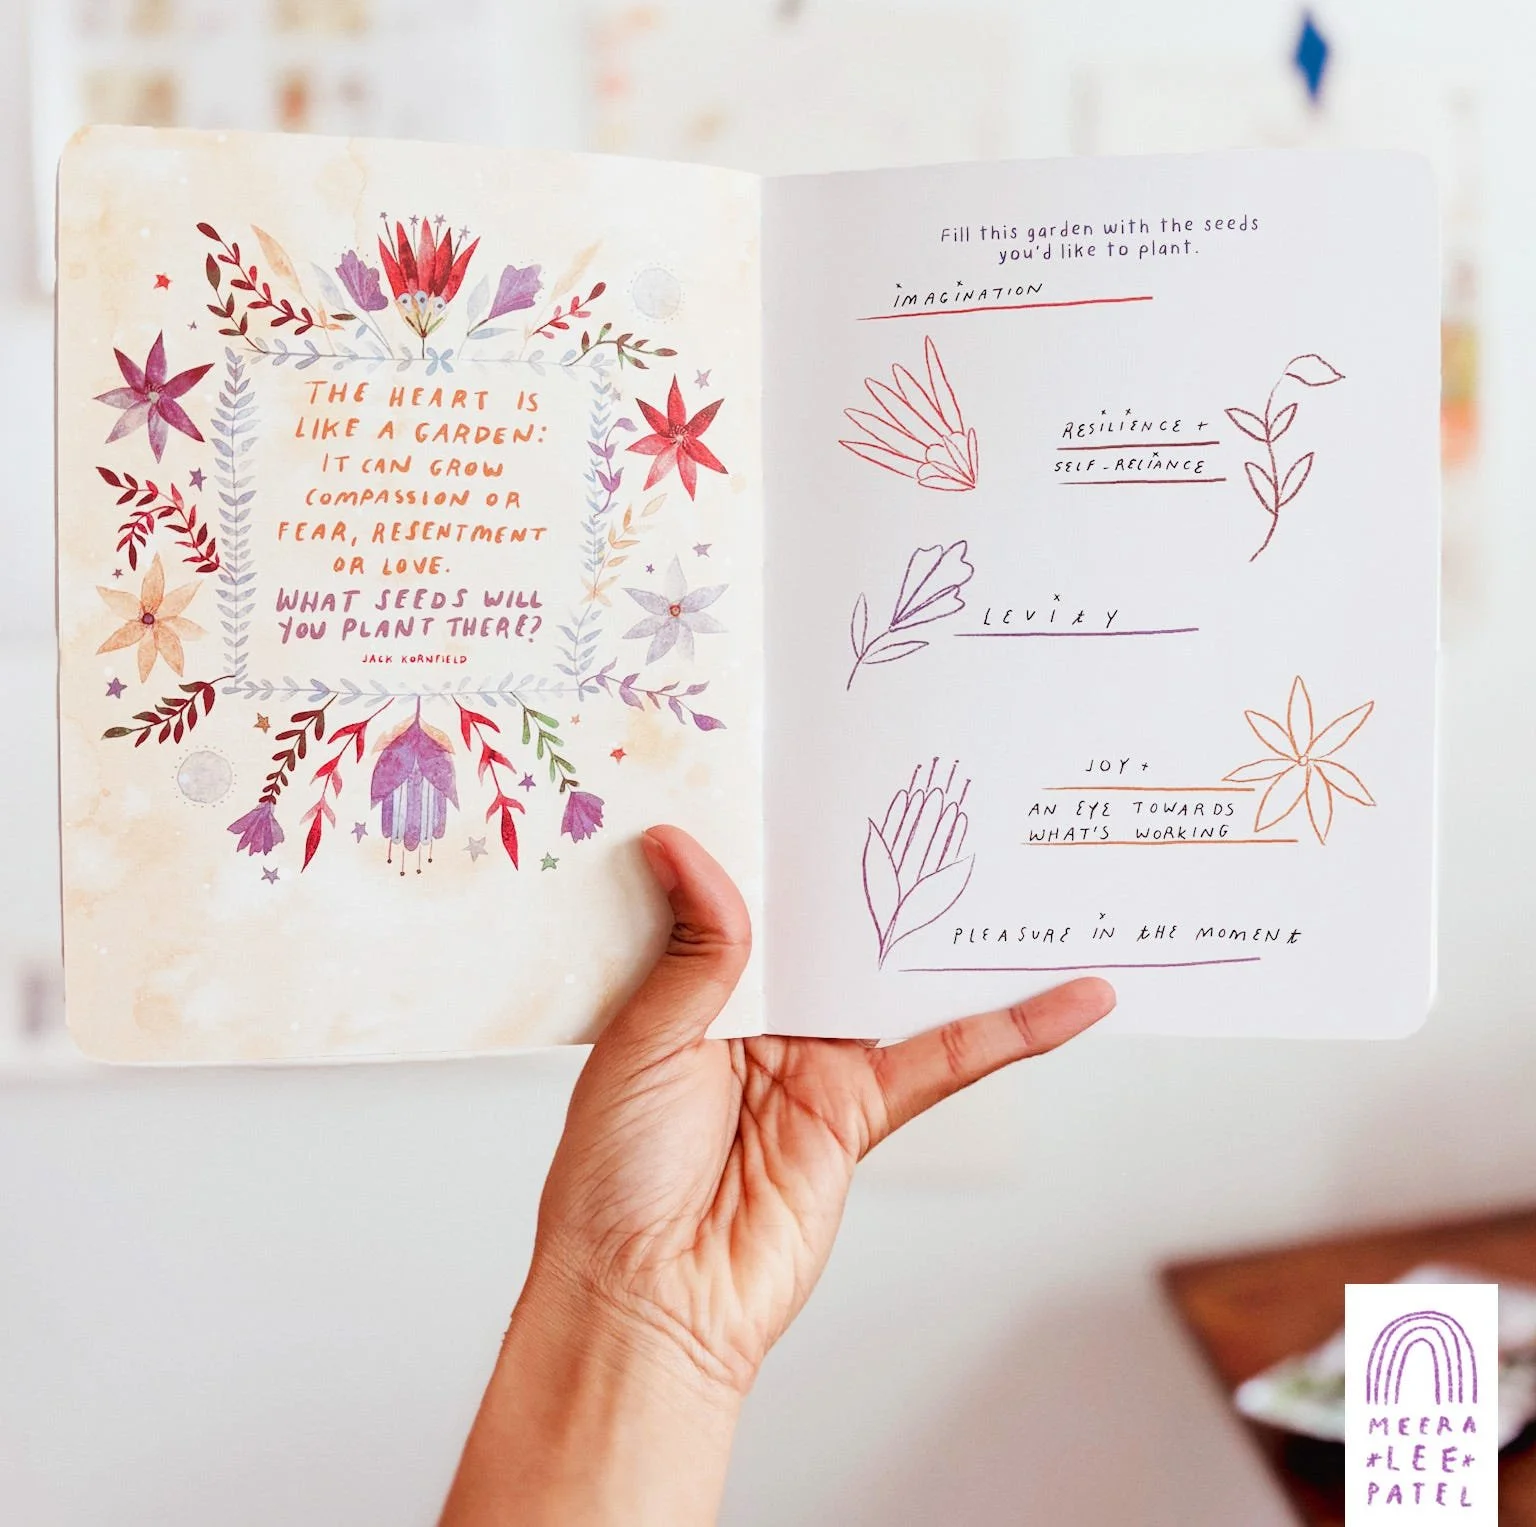 THE HEART IS
LIKE A GARDEN:
IT CAN GROW
COMPASSION OR
FEAR, RESENTMENT
OR LOVE.
WHAT SEEDS WILL
YOU PLANT THERE?
JACK KORNFIELD
Fill this garden with the seeds
you'd like to plant.
IMAGINATION
RESILIENCE +
SELF-RELIANCE
LEVITY
JOY +
AN EYE TOWARDS
WHAT'S WORKING
PLEASURE IN THE MOMENT
MEERA
*LEE*
PATEL